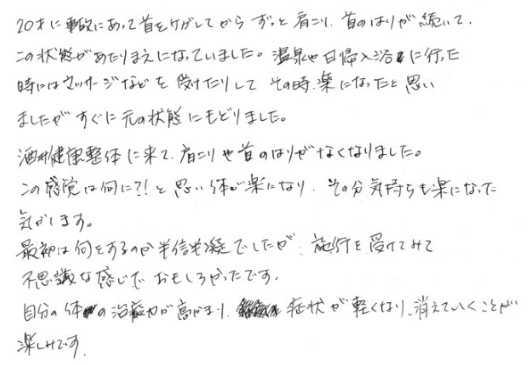 20才に事故にあって首をケガしてから ずっと肩こり、首のはりが続いて、
この状態があたりまえになっていました。温泉や日帰入浴に行った
時にはマッサージなどを受けたりして その時、楽になったと思い
ましたがすぐに元の状態にもどりました。
酒井健康整体に来て、肩こりや首のはりがなくなりました。
この感覚は何に?!と思い体が楽になり、その分気持ちも楽になった
気がします。
最初は何をするのか半信半疑でしたが、施術を受けてみて
不思議な感じで おもしろかったです。
自分の体の治癒力が高まり、症状が軽くなり、消えていくことが
楽しみです。